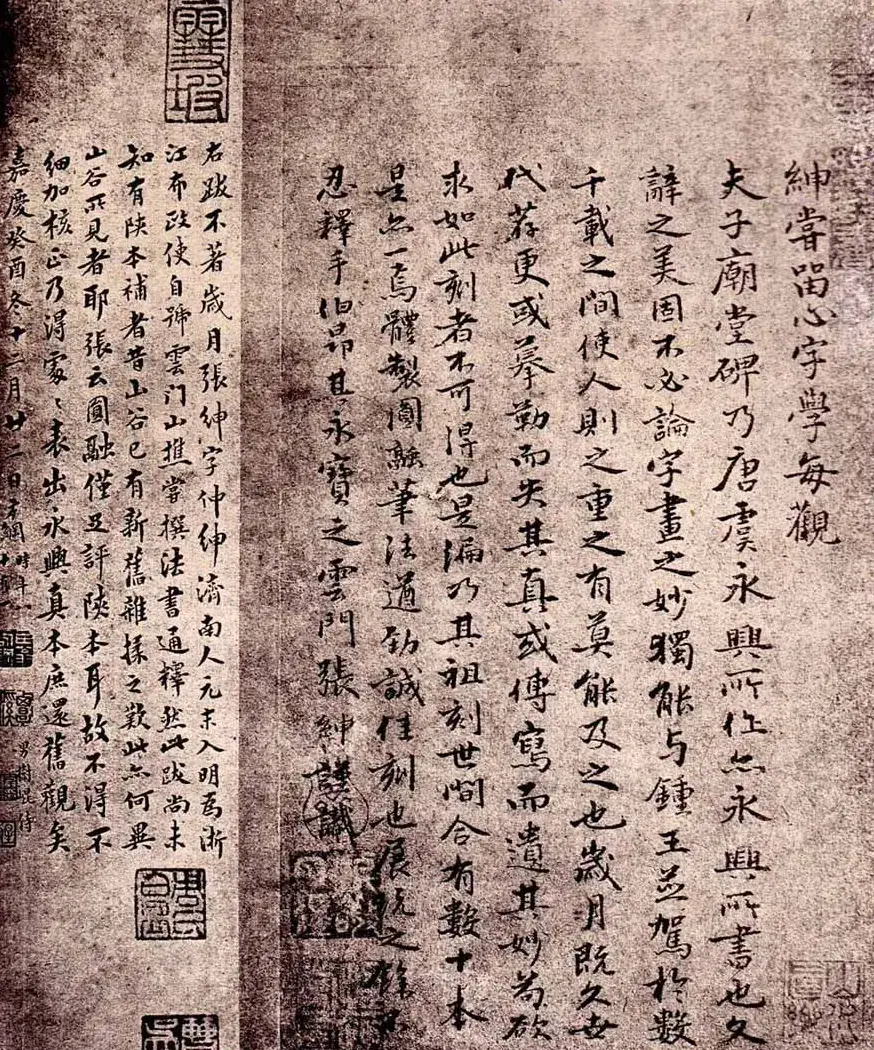 紳嘗留心字學每觀
夫子廟堂碑乃唐虞永興所作亦永興所書也文
辭之美固不必論字畫之妙獨能与鍾王並駕於數
千載之間使人則之重之有莫能及之也歲月既久世
代荐更或摹勒而失其真或傳寫而遺其妙苟欲
求如此刻者不可得也是編乃其祖刻世間合有數十本
是亦一焉體製圓融筆法遒勁誠佳刻也展玩之餘不
忍釋手伯昂其永寶之雲門張紳謹識
右跋不著歲月張紳字仲紳濟南人元末入明爲浙
江布政使自號雲门山樵嘗撰法書通釋然此跋尚未
知有陝本補者昔山谷已有新舊雜揉之歎此亦何異
山谷所見者耶張云圓融僅足評陝本耳故不得不
細加核正乃得處〻表出永興真本庶還舊觀矣
嘉慶癸酉冬十二月廿二日方綱時年
男樹崑侍